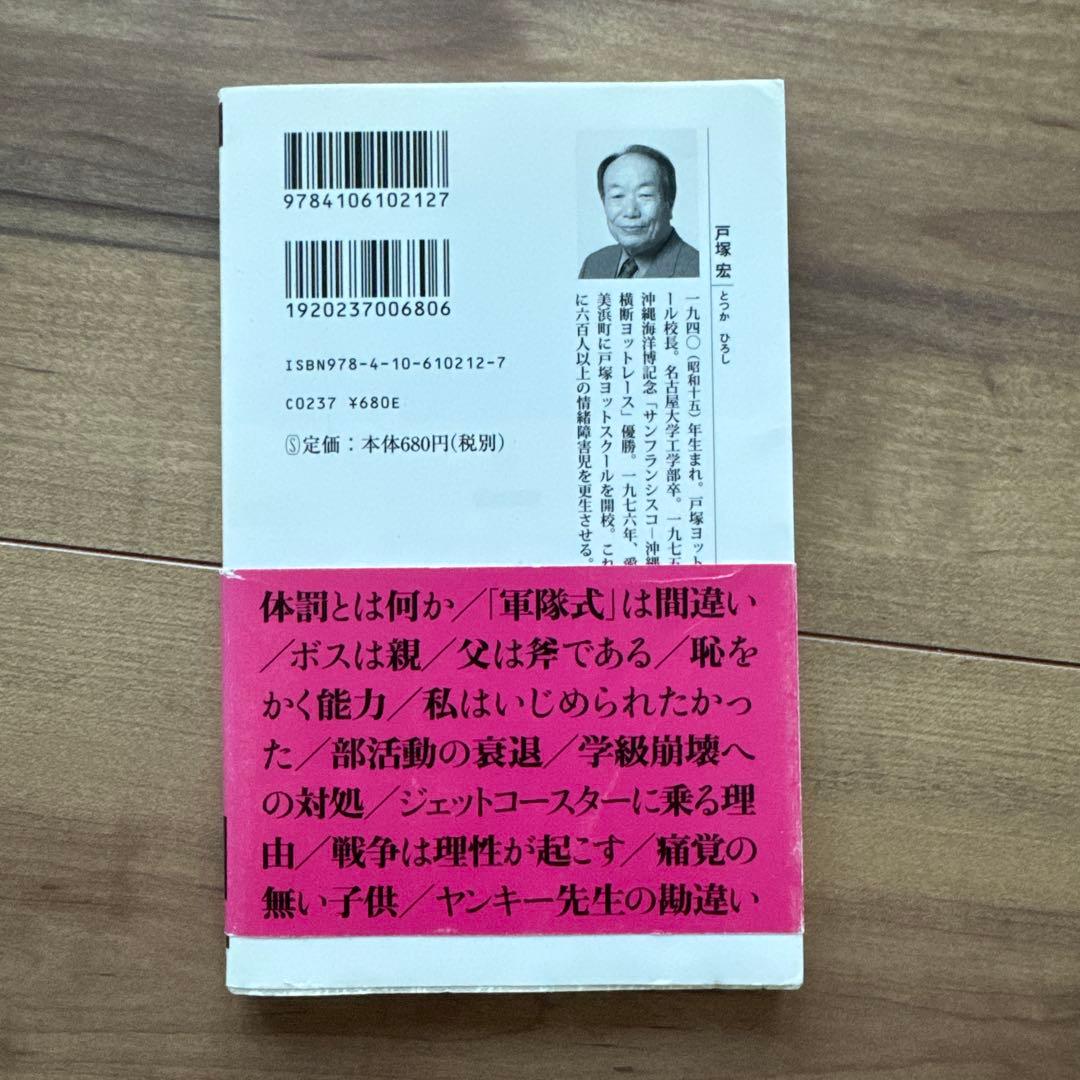 9784106102127
1920237006806
ISBN978-4-10-610212-7
C0237 ¥680E
Ⓢ定価：本体680円(税別)
戸塚 宏 とつか ひろし
一九四〇（昭和十五）年生まれ。戸塚ヨット
ール校長。名古屋大学工学部卒。一九七五
沖縄海洋博記念「サンフランシスコ－沖縄
横断ヨットレース」優勝。一九七六年、愛
美浜町に戸塚ヨットスクールを開校。これ
に六百人以上の情緒障害児を更生させる。
体罰とは何か／「軍隊式」は間違い
／ボスは親／父は斧である／恥を
かく能力／私はいじめられたかっ
た／部活動の衰退／学級崩壊へ
の対処／ジェットコースターに乗る理
由／戦争は理性が起こす／痛覚の
無い子供／ヤンキー先生の勘違い